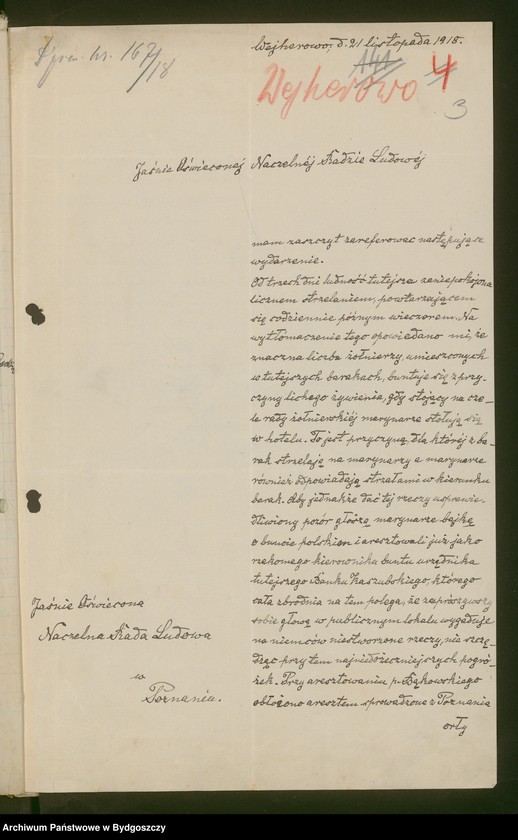 Wejherowo, d. 21 listopada 1918.
Spra. nr. 167/18
141
Wejherowo 4
3
Jaśnie Oświeconej Naczelnéj Radzie Ludowéj
mam zaszczyt zareferować następujące
wydarzenie.
Od trzech dni ludność tutejsza zaniepokojona
licznem strzelaniem, powtarzającem
się codziennie późnym wieczorem. Na
wytłomaczenie tego opowiedano mi, że
znaczna liczba żołnierzy, umieszconych
w tutejszych barakach, buntuje się z przy-
czyny lichego żywienia, gdy stojący na cze-
le rady żołnierskiéj marynarze stołują się
w hotelu. To jest przyczyną, dla któréj z ba-
rak strzelają na marynarzy a marynarze
również odpowiadają strzałami w kierunku
barak. Aby jednakże dać téj rzeczy usprawie-
dliwiony pozór głoszą marynarze bajkę
o buncie polskiem i aresztowali już jako
rzekomego kierownika buntu urzędnika
tutejszego Banku Kaszubskiego, którego
cała zbrodnia na tem polega, że zaprószywszy
sobie głowę w publicznym lokalu wygaduje
na niemców niestworzone rzeczy, nie szczę-
dząc przytem najniedorzeczniejszych pogró-
żek. Przy aresztowaniu p. Bąkowskiego
obłożono aresztem sprowadzone z Poznania
orły
Jaśnie Oświecona
Naczelna Rada Ludowa
w
Poznaniu.
Archiwum Państwowe w Bydgoszczy